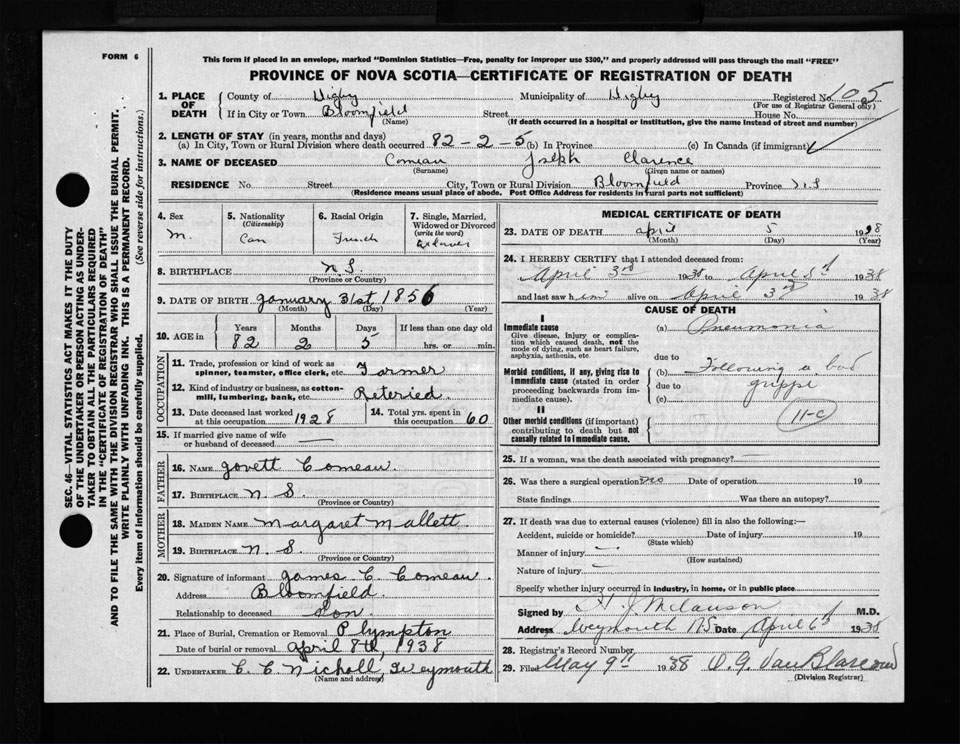 FORM 6
This form if placed in an envelope, marked "Dominion Statistics—Free, penalty for improper use $300," and properly addressed will pass through the mail "FREE"
PROVINCE OF NOVA SCOTIA—CERTIFICATE OF REGISTRATION OF DEATH
SEC. 46—VITAL STATISTICS ACT MAKES IT THE DUTY
OF THE UNDERTAKER OR PERSON ACTING AS UNDER-
TAKER TO OBTAIN ALL THE PARTICULARS REQUIRED
IN THE "CERTIFICATE OF REGISTRATION OF DEATH"
AND TO FILE THE SAME WITH THE DIVISION REGISTRAR WHO SHALL ISSUE THE BURIAL PERMIT.
WRITE PLAINLY WITH UNFADING INK. THIS IS A PERMANENT RECORD.
Every item of information should be carefully supplied. (See reverse side for instructions.)
1. PLACE OF DEATH County of Digby Municipality of Digby Registered No. 105
(For use of Registrar General only)
If in City or Town Bloomfield Street House No.
(Name) (If death occurred in a hospital or institution, give the name instead of street and number)
2. LENGTH OF STAY (in years, months and days)
(a) In City, Town or Rural Division where death occurred 82-2-5 (b) In Province (c) In Canada (if immigrant)
3. NAME OF DECEASED Comeau Joseph Clarence
(Surname) (Given name or names)
RESIDENCE No. Street City, Town or Rural Division Bloomfield Province N.S
(Residence means usual place of abode. Post Office Address for residents in rural parts not sufficient)
4. Sex M.
5. Nationality (Citizenship) Can
6. Racial Origin French
7. Single, Married, Widowed or Divorced (write the word)
8. BIRTHPLACE N S.
(Province or Country)
9. DATE OF BIRTH January 31st 1856
(Month) (Day) (Year)
10. AGE IN Years 82 Months 2 Days 5 If less than one day old hrs. or min.
OCCUPATION
11. Trade, profession or kind of work as spinner, teamster, office clerk, etc. Farmer
12. Kind of industry or business, as cotton-mill, lumbering, bank, etc. Reteried.
13. Date deceased last worked at this occupation 1928 14. Total yrs. spent in this occupation 60
15. If married give name of wife or husband of deceased —
FATHER
16. NAME Govett Comeau.
17. BIRTHPLACE N. S.
(Province or Country)
MOTHER
18. MAIDEN NAME Margaret Mallett.
19. BIRTHPLACE N. S.
(Province or Country)
20. Signature of informant James C. Comeau.
Address Bloomfield.
Relationship to deceased Son.
21. Place of Burial, Cremation or Removal Plympton
Date of burial or removal April 8th, 1938
22. UNDERTAKER C C Nicholl, Weymouth
(Name and address)
MEDICAL CERTIFICATE OF DEATH
23. DATE OF DEATH April 5 1938
(Month) (Day) (Year)
24. I HEREBY CERTIFY that I attended deceased from:
April 3rd 1938 to April 5th 1938
and last saw him alive on April 3rd 1938
CAUSE OF DEATH
I
Immediate cause
Give disease, injury or complication which caused death, not the mode of dying, such as heart failure, asphyxia, asthenia, etc.
(a) Pneumonia
due to
Morbid conditions, if any, giving rise to immediate cause (stated in order proceeding backwards from immediate cause).
(b) Following a bad
due to grippe
(c)
II
Other morbid conditions (if important) contributing to death but not causally related to immediate cause.
11-c
25. If a woman, was the death associated with pregnancy? —
26. Was there a surgical operation? no Date of operation 19
State findings Was there an autopsy?
27. If death was due to external causes (violence) fill in also the following:—
Accident, suicide or homicide? Date of injury 19
(State which)
Manner of injury
(How sustained)
Nature of injury
Specify whether injury occurred in industry, in home, or in public place
Signed by M.D.
Address Weymouth NS Date April 6th 1938
28. Registrar's Record Number
29. Filed May 9th 1938 O. G. Van Blarcom
(Division Registrar)